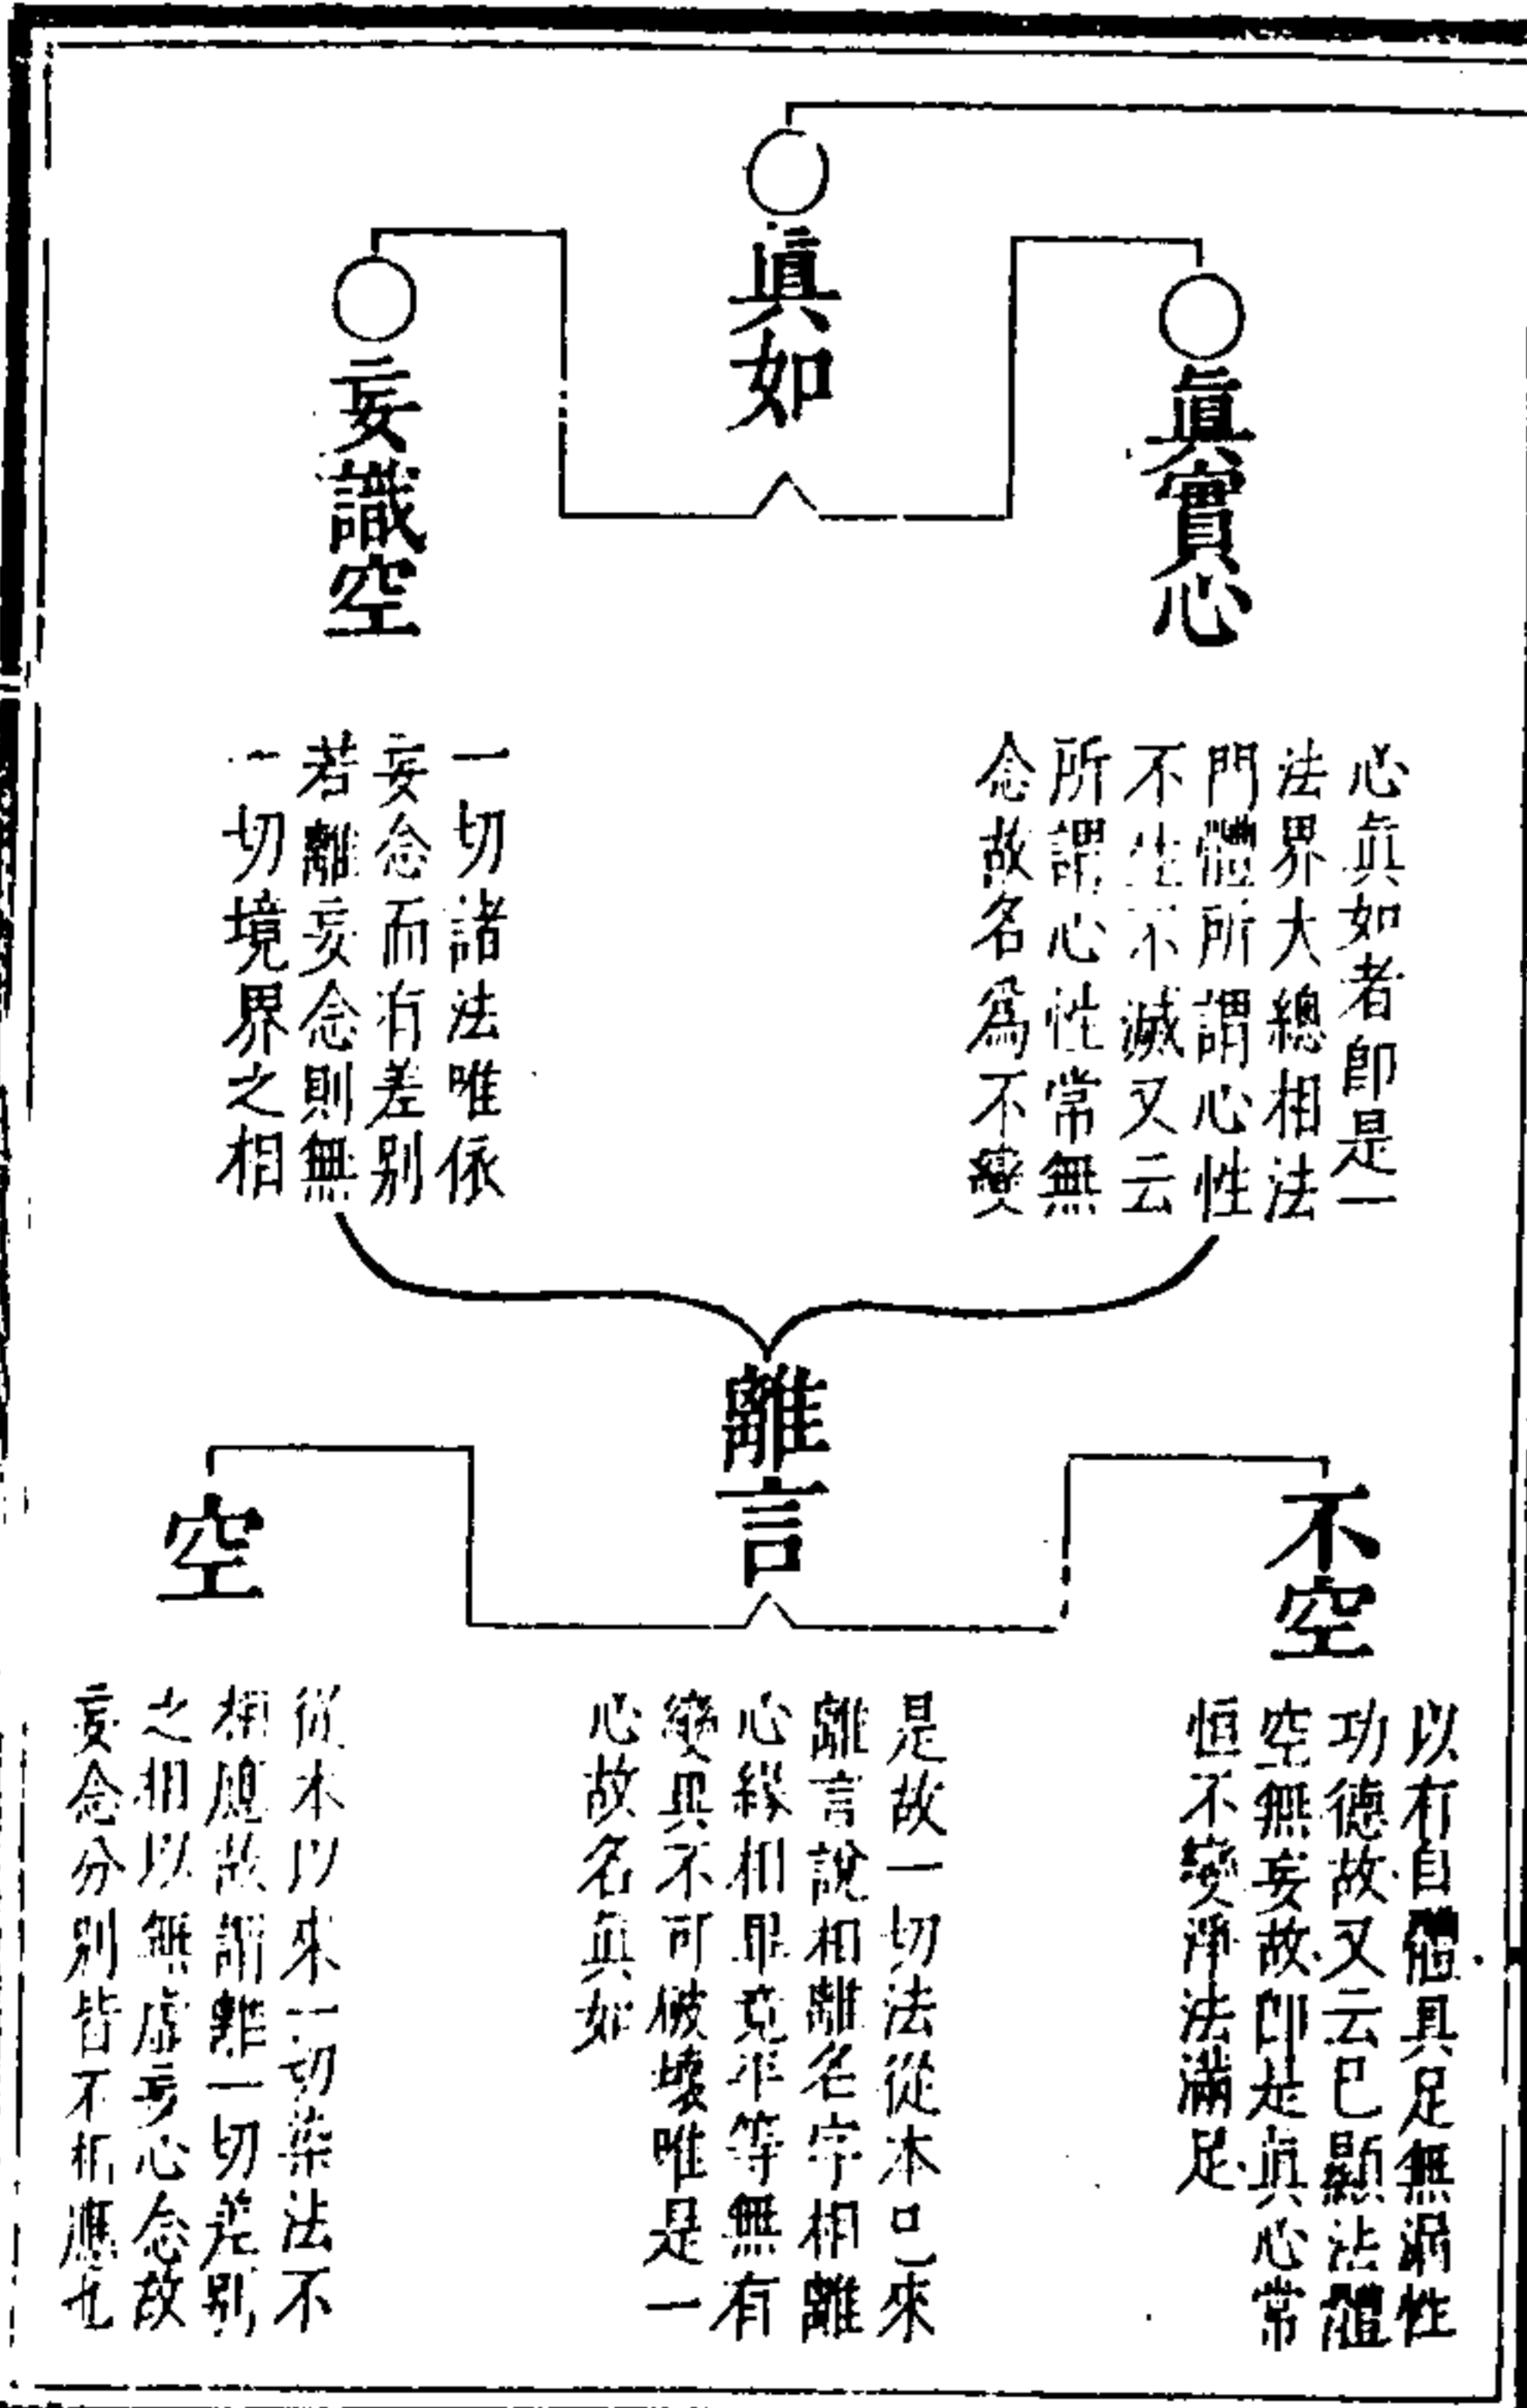 眞如
眞實心
心眞如者卽是一
法界大總相法
門體所謂心性
不生不滅又云
所謂心性常無
念故名爲不變
妄識空
一切諸法唯依
妄念而有差別
若離妄念則無
一切境界之相
離言
不空
以有自體具足無漏性
功德故又云已顯法體
空無妄故卽是眞心常
恒不變淨法滿足
是故一切法從本已來
離言說相離名字相離
心緣相畢竟平等無有
變異不可破壞唯是一
心故名眞如
空
從本以來一切染法不
相應故謂離一切差別
之相以無虛妄心念故
妄念分別皆不相應也